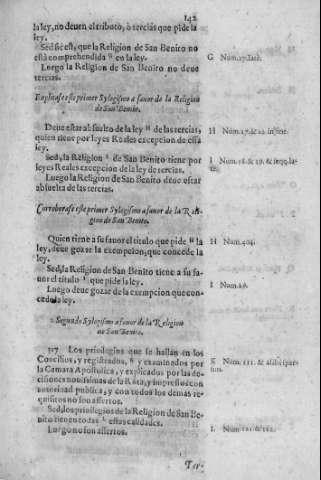 142
la ley, no deuen el tributo, ò tercias que pide la
ley.
Sed sic est, que la Religion de San Benito no
està comprehendida G en la ley.
G Num.
Luego la Religion de San Benito no deue
tercias.
Explicase este primer Sylogismo a fauor de la Religion
de San Benito.
Deue estar absuelto de la ley H de las tercias,
quien tiene por leyes Reales excepcion de essa
ley.
H Num. 17. & in fine.
Sed, la Religion I de San Benito tiene por
leyes Reales excepcion de la ley de tercias.
I Num. 18. & 19. & seqq. late.
Luego la Religion de San Benito deue estar
absuelta de las tercias.
Corroborase este primer Sylogismo a fauor de la Reli-
gion de San Benito.
Quien tiene a su fauor el titulo que pide H la
ley, deue gozar la exempcion, que concede la
ley.
H Num. 404.
Sed, la Religion de San Benito tiene a su fa-
uor el titulo I que pide la ley.
I Num.
Luego deue gozar de la exempcion que con-
cede la ley.
Segundo Sylogismo a fauor de la Religion
no San Benito.
317 Los priuilegios que se hallan en los
Concilios, y registrados, K y examinados por
la Camara Apostolica, y explicados por las de-
cisiones nouissimas de la Rota, y impressos con
autoridad publica, y con todos los demas re-
quisitos no son assertos.
K Num. 131. & alibi spar-
sim.
Sed, los priuilegios de la Religion de San Be-
nito tienen todas L estas calidades.
Luego no son assertos.
L Num. 131. & 162.
Ter-